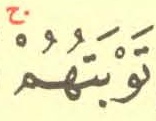 ج
تَوْبَتُهُمُۥْ